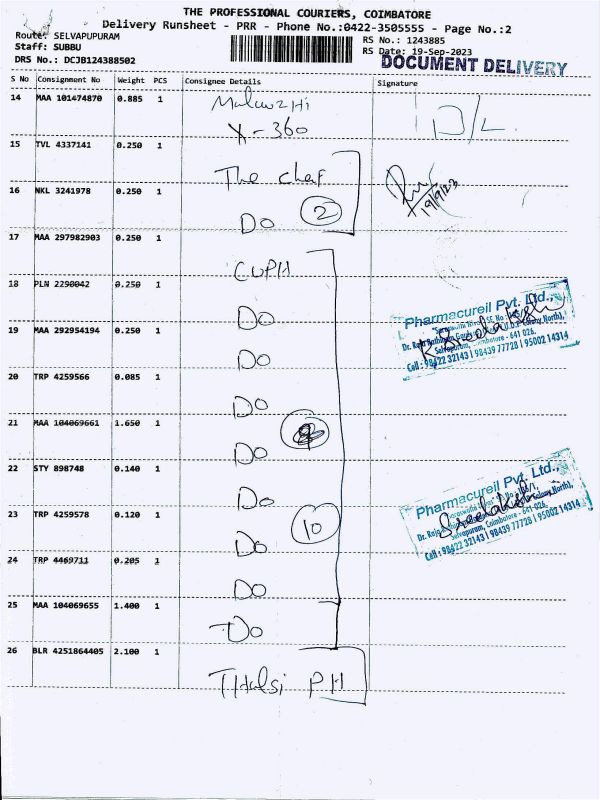 THE PROFESSIONAL COURIERS, COIMBATORE
Delivery Runsheet - PRR - Phone No.:0422-3505555 - Page No.:2
Route: SELVAPUPURAM
Staff: SUBBU
DRS No.: DCJB124388502
RS No.: 1243885
RS Date: 19-Sep-2023
DOCUMENT DELIVERY
S No Consignment No Weight PCS Consignee Details Signature
14 MAA 101474870 0.885 1
X-360 D/L.
15 TVL 4337141 0.250 1
The chef
16 NKL 3241978 0.250 1
Do 2 19/9/23
17 MAA 297982903 0.250 1
CUPH
18 PLN 2290042 0.250 1
Do
19 MAA 292954194 0.250 1
Do
20 TRP 4259566 0.085 1
Do
21 MAA 104069661 1.650 1
Do
22 STY 898748 0.140 1
Do
23 TRP 4259578 0.120 1
Do 10
24 TRP 4469711 0.205 1
Do
25 MAA 104069655 1.400 1
Do
26 BLR 4251864405 2.100 1
THulsi PH
Pharmacureil Pvt. Ltd.,
Selvapuram, Coimbatore - 641 026.
Cell : 98422 32143 | 98439 77728 | 95002 14314
Pharmacureil Pvt. Ltd.,
Selvapuram, Coimbatore - 641 026.
Cell : 98422 32143 | 98439 77728 | 95002 14314